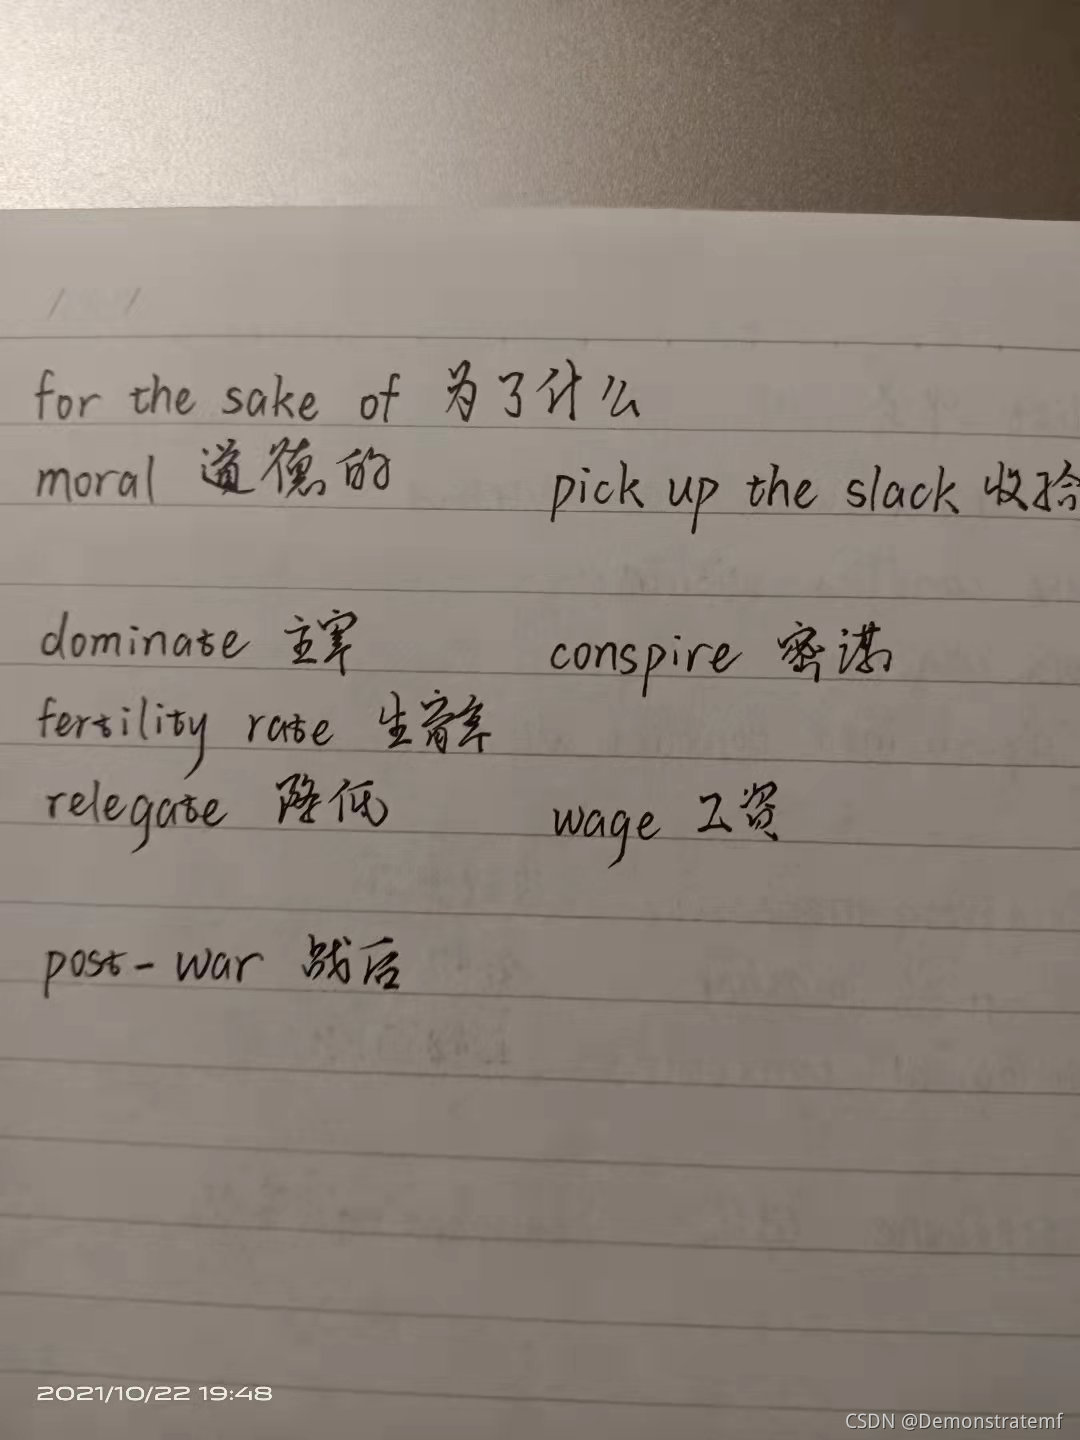 for the sake of 为了什么
moral 道德的 pick up the slack 收拾
dominate 主宰 conspire 密谋
fertility rate 生育率
relegate 降低 wage 工资
post-war 战后
2021/10/22 19:48
CSDN @Demonstratemf